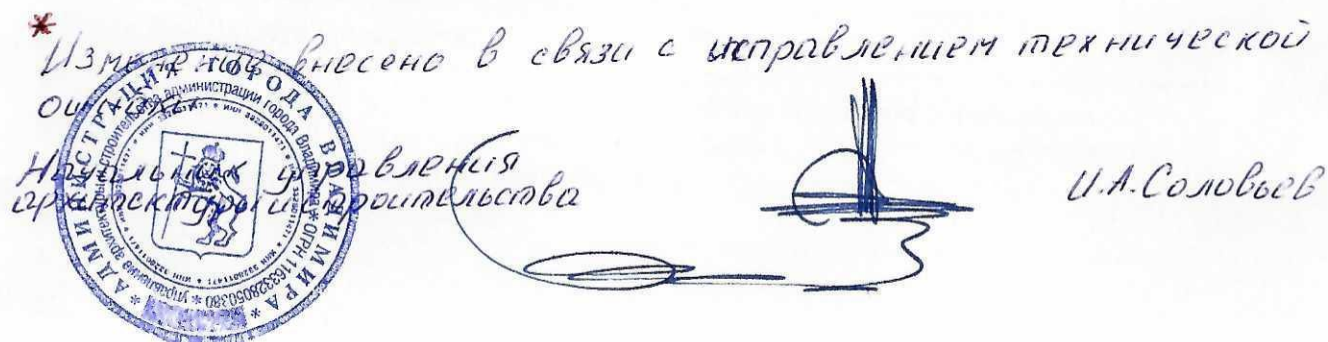 *
Изменение внесено в связи с исправлением технической
ошибки
Начальник управления
архитектуры и строительства
И.А.Соловьев
* АДМИНИСТРАЦИЯ ГОРОДА ВЛАДИМИРА *
управление архитектуры и строительства администрации города Владимира * ОГРН 1163328050380 *
* ИНН 3328011471 * ИНН 3328011471 *